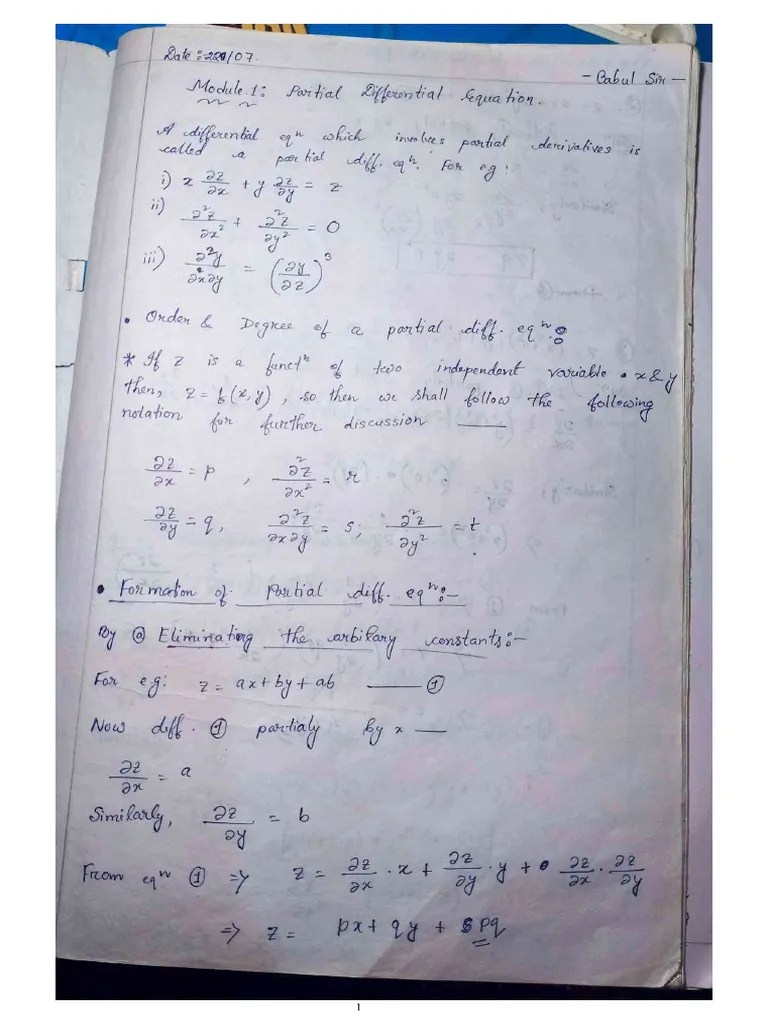 Date :- 229/07.
- Babul Sir -
Module.1: Partial Differential Equation.
A differential eqn which involves partial derivatives is
called a partial diff. eqn. For eg:
i) x ∂z/∂x + y ∂z/∂y = z
ii) ∂²z/∂x² + ∂²z/∂y² = 0
iii) ∂²y/∂x∂y = (∂y/∂z)³
• Order & Degree of a partial diff. eqn :
* If z is a functn of two independent variable • x & y
then, z = f(x, y), so then we shall follow the following
notation for further discussion —
∂z/∂x = p , ∂²z/∂x² = r
∂z/∂y = q, ∂²z/∂x∂y = s; ∂²z/∂y² = t
• Formation of partial diff. eqn :-
By @ Eliminating the arbikary constants:-
For eg: z = ax + by + ab — ①
Now diff. ① partialy by x —
∂z/∂x = a
Similarly, ∂z/∂y = b
From eqn ① => z = ∂z/∂x · x + ∂z/∂y · y + ∂z/∂x · ∂z/∂y
=> z = px + qy + pq
1